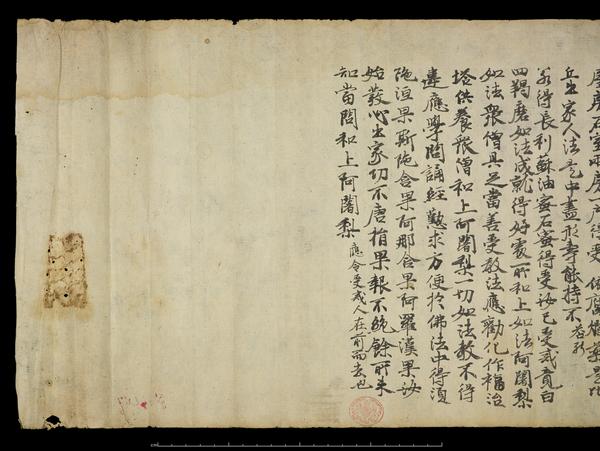 石室兩房一戶得受 依腐爛藥是比
丘出家人法是中盡形壽能持不答能
若得長利蘇油蜜石蜜得受汝已受戒竟白
四羯磨如法成就得好處所和上如法阿闍梨
如法衆僧具足當善受教法應勸化作福治
塔供養衆僧和上阿闍梨一切如法教不得
違應學問誦經懃求方便於佛法中得須
陁洹果斯陁含果阿那含果阿羅漢果汝
始發心出家功不唐捐果報不絶餘所未
知當問和上阿闍梨 應令受戒人在前而去也